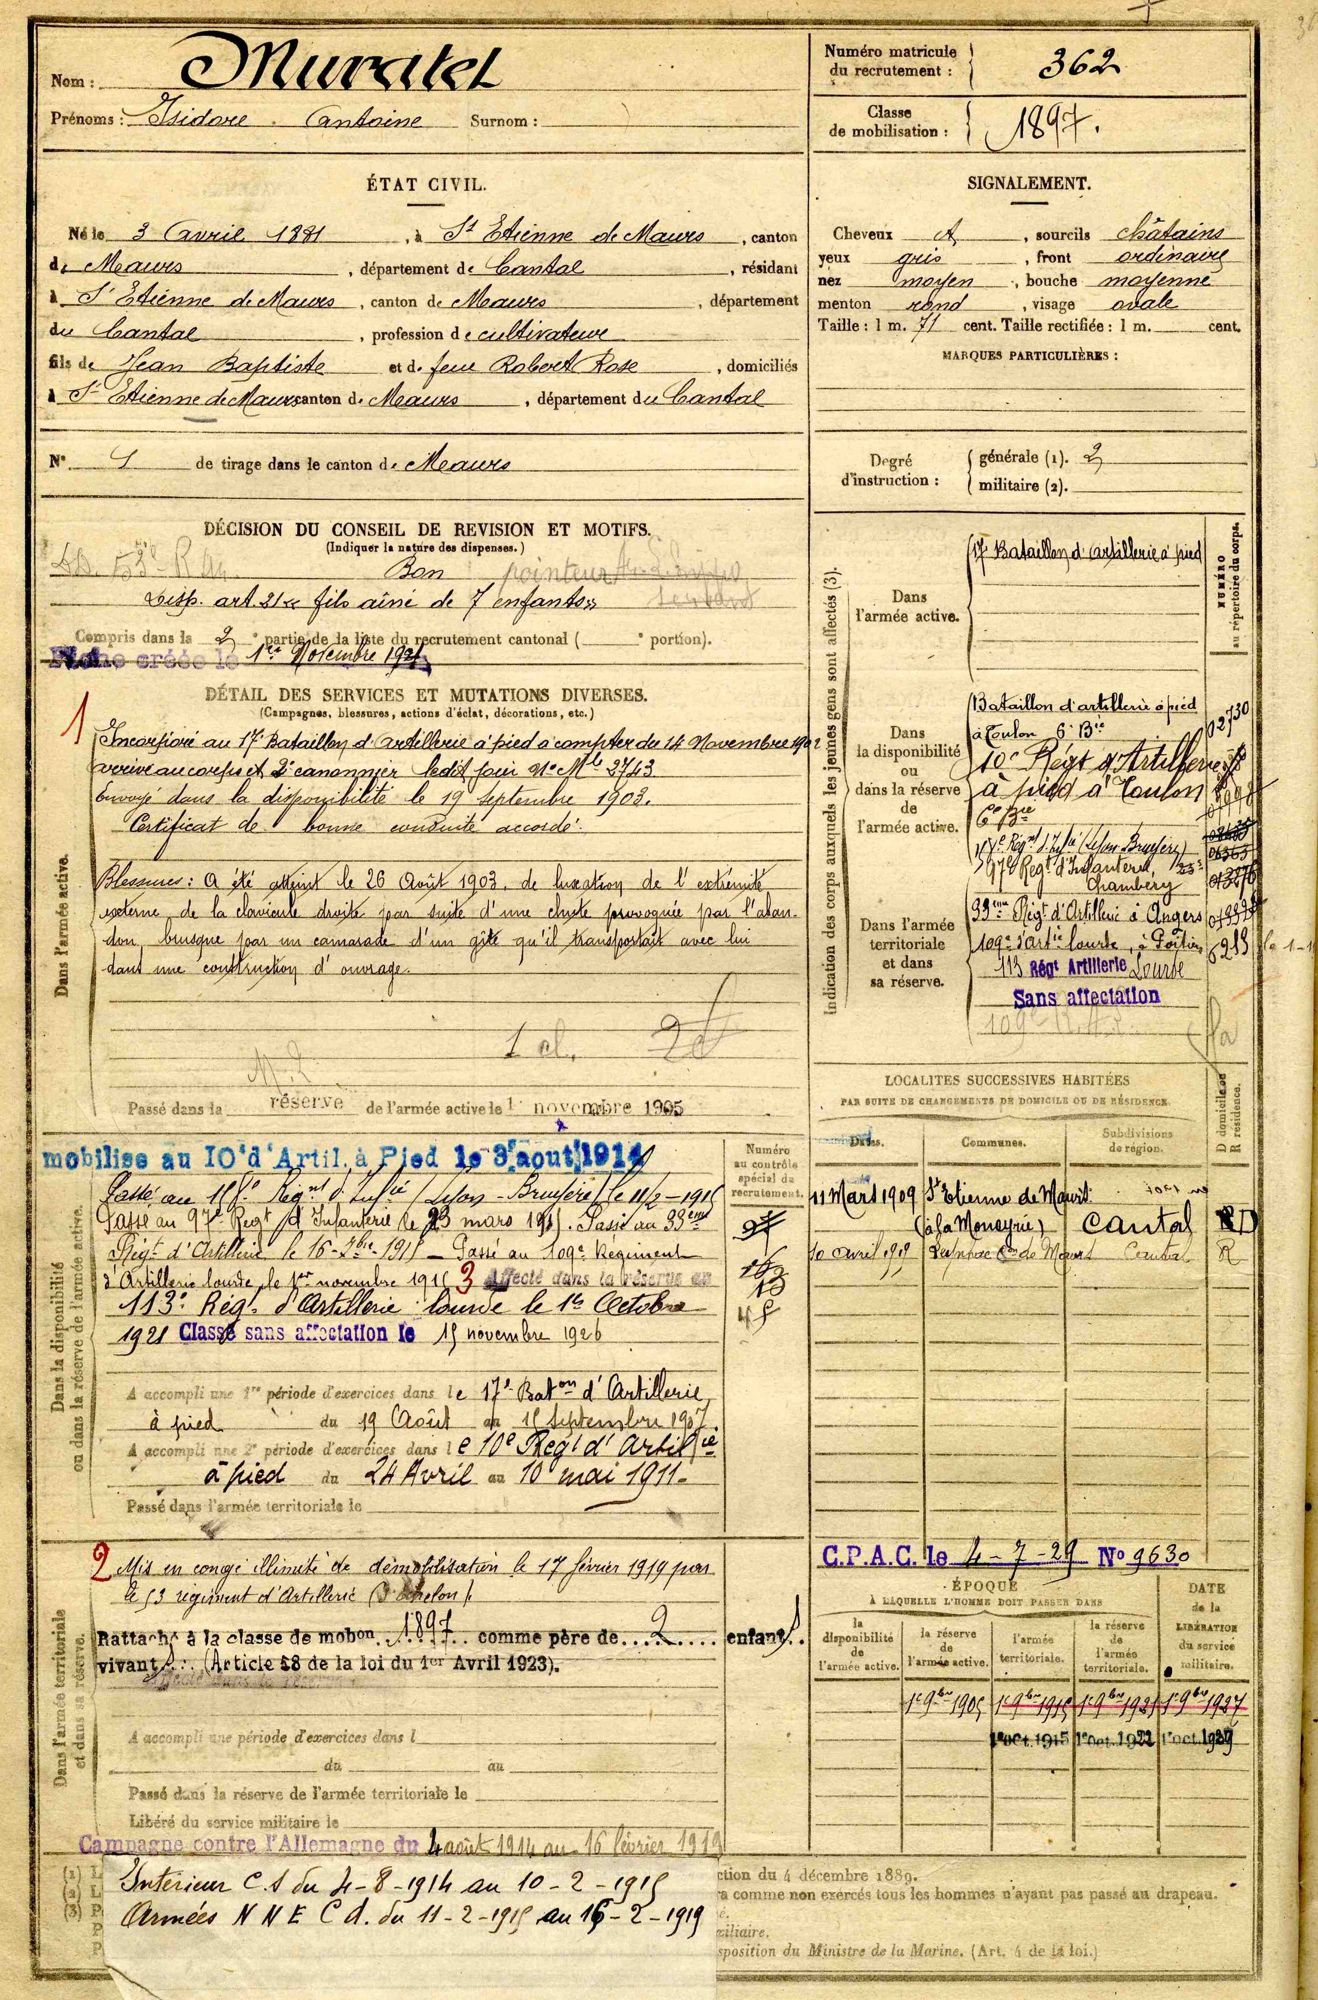 Nom : Muratel
Prénoms : Isidore Antoine Surnom :
Numéro matricule du recrutement : 362
Classe de mobilisation : 1897.
ÉTAT CIVIL.
Né le 3 Avril 1881, à St Etienne de Maurs, canton
de Maurs, département de Cantal, résidant
à St Etienne de Maurs, canton de Maurs, département
du Cantal, profession de cultivateur
fils de Jean Baptiste et de feue Robert Rose, domiciliés
à St Etienne de Maurs canton de Maurs, département du Cantal
N° de tirage dans le canton de Maurs
SIGNALEMENT.
Cheveux et, sourcils châtains
yeux gris, front ordinaire
nez moyen, bouche moyenne
menton rond, visage ovale
Taille : 1 m. 71 cent. Taille rectifiée : 1 m. cent.
MARQUES PARTICULIÈRES :
Degré d'instruction : générale (1). 2
militaire (2).
DÉCISION DU CONSEIL DE REVISION ET MOTIFS.
(Indiquer la nature des dispenses.)
Bon pointeur
Disp. art 21 fils aîné de 7 enfants
Compris dans la 2e partie de la liste du recrutement cantonal ( e portion).
Fiche créée le 1er Novembre 1921
DÉTAIL DES SERVICES ET MUTATIONS DIVERSES.
(Campagnes, blessures, actions d'éclat, décorations, etc.)
Dans l'armée active.
1
Incorporé au 17e Bataillon d'Artillerie à pied à compter du 14 Novembre 1902
arrivé au corps et 2e canonnier ledit jour No Mle 2743
Envoyé dans la disponibilité le 19 septembre 1903.
Certificat de bonne conduite accordé.
Blessures : A été atteint le 26 Août 1903, de luxation de l'extrémité
externe de la clavicule droite par suite d'une chute provoquée par l'aban-
don brusque par un camarade d'un gîte qu'il transportait avec lui
dans une construction d'ouvrage.
1 cl.
Passé dans la réserve de l'armée active le 1er novembre 1905
Indication des corps auxquels les jeunes gens sont affectés (3).
NUMÉRO au répertoire du corps.
Dans l'armée active.
17e Bataillon d'artillerie à pied
Dans la disponibilité ou dans la réserve de l'armée active.
Bataillon d'artillerie à pied
à Toulon 6e Bie
02730
10e Régt d'Artillerie
à pied à Toulon
6e Bie
97e Regt d'Infanterie
Chambéry
Dans l'armée territoriale et dans sa réserve.
33eme Régt d'Artillerie à Angers
109e d'artie lourde, à Poitiers
113 Régt Artillerie Lourde
Sans affectation
109e R.A.L.
LOCALITES SUCCESSIVES HABITÉES
PAR SUITE DE CHANGEMENTS DE DOMICILE OU DE RÉSIDENCE.
Dates. Communes. Subdivisions de région. D domicile ou R résidence.
11 Mars 1909 St Etienne de Maurs
(à la Moneyrie) Cantal D
10 avril 1919 Cantal R
Dans la disponibilité ou dans la réserve de l'armée active.
Numéro au contrôle spécial du recrutement.
mobilisé au 10e d'Artil. à Pied le 3 août 1914
Passé au 158e Régnt d'Infie (Lyon-Bruyère) le 11/2-1915
Passé au 97e Regt d'Infanterie le 23 mars 1915. Passé au 33eme
Régt d'Artillerie le 16-7bre 1915 - Passé au 109e Régiment
d'Artillerie lourde le 1er novembre 1915 3 Affecté dans la réserve au
113e Régt d'Artillerie lourde le 1er Octobre
1921 Classé sans affectation le 15 novembre 1926
A accompli une 1re période d'exercices dans le 17e Baton d'Artillerie
à pied du 19 Août au 15 Septembre 1907
A accompli une 2e période d'exercices dans le 10e Régt d'Artilie
à pied du 24 Avril au 10 mai 1911-
Passé dans l'armée territoriale le
Dans l'armée territoriale et dans sa réserve.
2 Mis en congé illimité de démobilisation le 17 février 1919 par
le 53 régiment d'Artillerie
Rattaché à la classe de mobon 1897 comme père de 2 enfants.
vivants. (Article 58 de la loi du 1er Avril 1923).
A accompli une période d'exercices dans l
du au
Passé dans la réserve de l'armée territoriale le
Libéré du service militaire le
Campagne contre l'Allemagne du 4 août 1914 au 16 février 1919
Intérieur C.S du 4-8-1914 au 10-2-1915
Armées N N E C d. du 11-2-1915 au 16-2-1919
C.P.A.C. le 4-7-29 No 9630
ÉPOQUE
À LAQUELLE L'HOMME DOIT PASSER DANS
DATE de la LIBÉRATION du service militaire.
la disponibilité de l'armée active. la réserve de l'armée active. l'armée territoriale. la réserve de l'armée territoriale.
1er 9bre 1905 1er 9bre 1915 1er 9bre 1921 1er 9bre 1927
1er oct. 1915 1er oct. 1922
ction du 4 décembre 1889.
ra comme non exercés tous les hommes n'ayant pas passé au drapeau.
xiliaire.
sposition du Ministre de la Marine. (Art. 4 de la loi.)